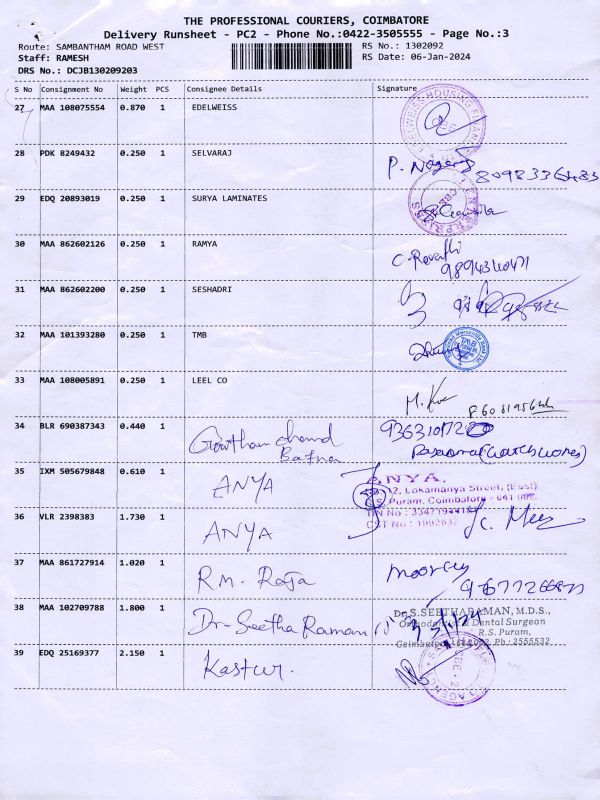 THE PROFESSIONAL COURIERS, COIMBATORE
Delivery Runsheet - PC2 - Phone No.:0422-3505555 - Page No.:3
Route: SAMBANTHAM ROAD WEST RS No.: 1302092
Staff: RAMESH RS Date: 06-Jan-2024
DRS No.: DCJB130209203
S No Consignment No Weight PCS Consignee Details Signature
27 MAA 108075554 0.870 1 EDELWEISS
28 PDK 8249432 0.250 1 SELVARAJ
29 EDQ 20893019 0.250 1 SURYA LAMINATES
30 MAA 862602126 0.250 1 RAMYA C. Revathi
9894340471
31 MAA 862602200 0.250 1 SESHADRI
32 MAA 101393280 0.250 1 TMB
33 MAA 108005891 0.250 1 LEEL CO
34 BLR 690387343 0.440 1 Gowtham chand
Bafna
35 IXM 505679848 0.610 1 ANYA ANYA,
12. Lokamanya Street, (East)
R.S. Puram, Coimbatore - 641 002.
36 VLR 2398383 1.730 1 ANYA
37 MAA 861727914 1.020 1 R.M. Raja
38 MAA 102709788 1.800 1 Dr. Seetha Raman Dr.S.SEETHARAMAN, M.D.S.,
Dental Surgeon
R.S. Puram,
Ph: 2555532
39 EDQ 25169377 2.150 1 Kastur.